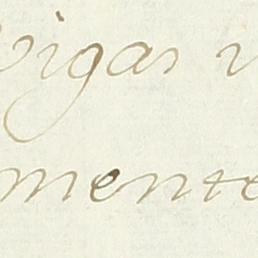 vigas v
mente